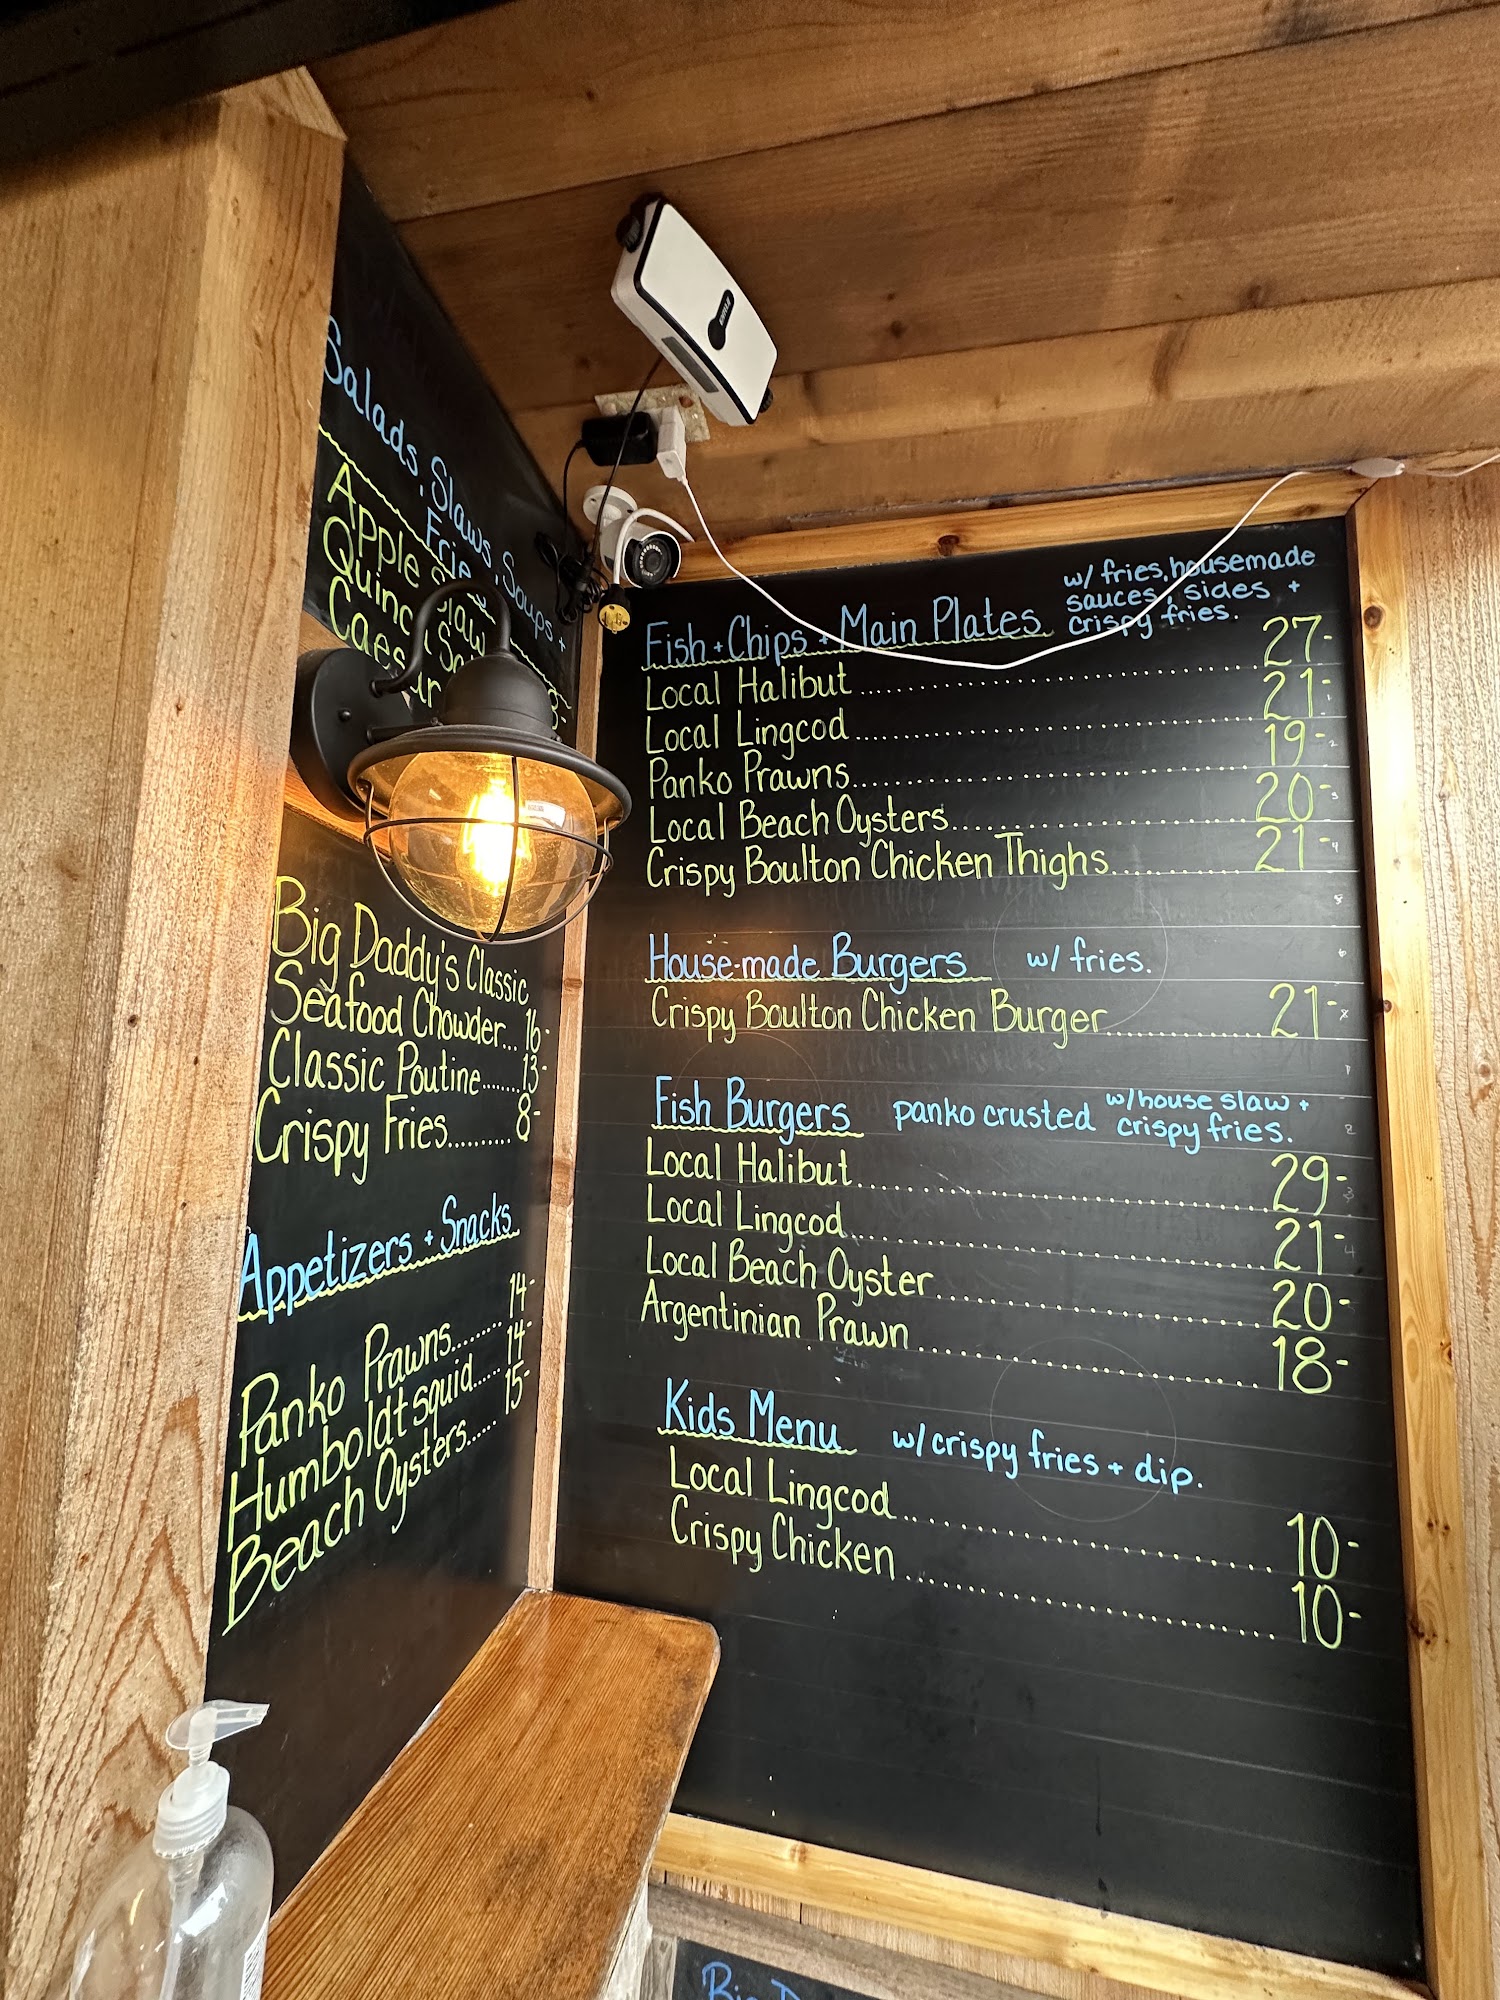 Salads, Slaws, Soups +
Apple Slaw
Caesar
8-
Big Daddy's Classic
Seafood Chowder... 16-
Classic Poutine.......13-
Crispy Fries.......... 8-
Appetizers + Snacks
Panko Prawns........ 14-
Humboldt squid..... 14-
Beach Oysters...... 15-
Fish + Chips + Main Plates w/ fries, housemade
sauces, sides +
crispy fries.
Local Halibut .......... 27-
Local Lingcod .......... 21-
Panko Prawns .......... 19-
Local Beach Oysters .......... 20-
Crispy Boulton Chicken Thighs .......... 21-
House-made Burgers w/ fries.
Crispy Boulton Chicken Burger .......... 21-
Fish Burgers panko crusted w/ house slaw +
crispy fries.
Local Halibut .......... 29-
Local Lingcod .......... 21-
Local Beach Oyster .......... 20-
Argentinian Prawn .......... 18-
Kids Menu w/ crispy fries + dip.
Local Lingcod .......... 10-
Crispy Chicken .......... 10-